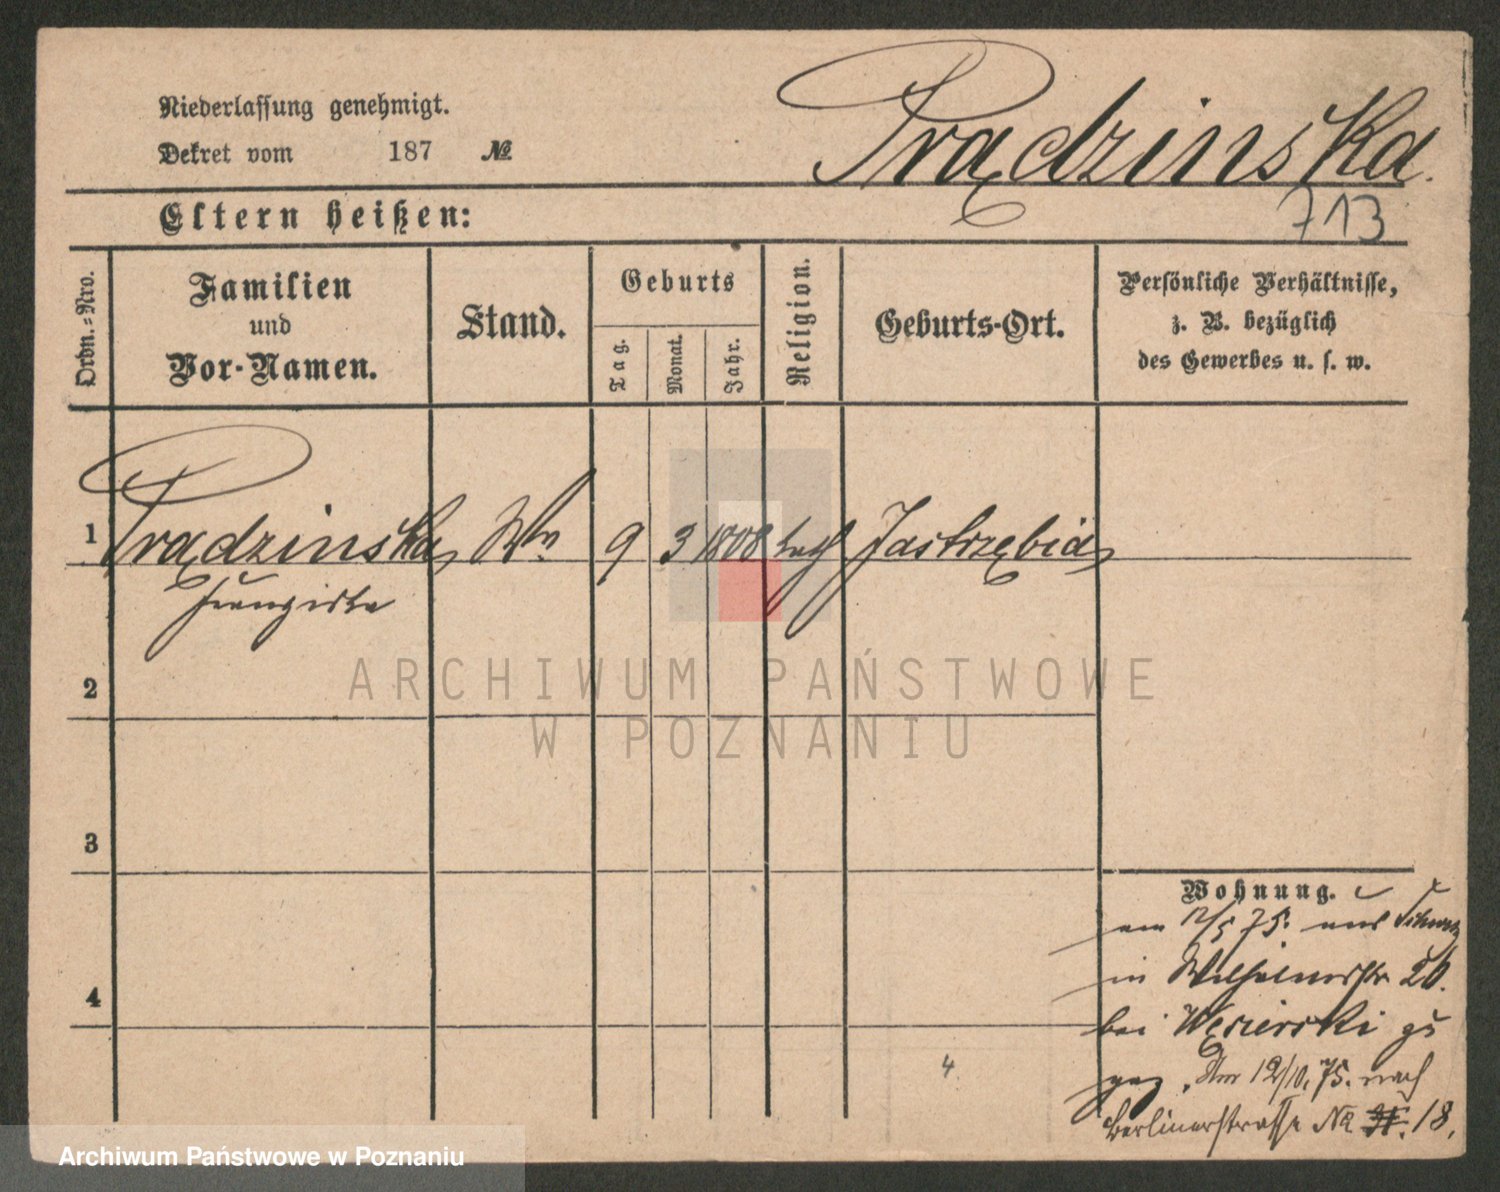 Niederlassung genehmigt.
Dekret vom 187 №
Prądzinska.
713
Eltern heißen:
Ordn.-Nro.
Familien
und
Vor-Namen.
Stand.
Geburts
Tag.
Monat.
Jahr.
Religion.
Geburts-Ort.
Persönliche Verhältnisse,
z. B. bezüglich
des Gewerbes u. s. w.
1 Prądzinska, Ww. 9 3 1808 kath Jastrzębia,
Franziska
2
3
4
Wohnung.
am 12/5 75. aus
in Wilhelmstr 26.
bei Węsierski zu
gez. Am 12/10. 75. nach
Berlinerstrasse No 18.
4
ARCHIWUM PAŃSTWOWE
W POZNANIU
Archiwum Państwowe w Poznaniu